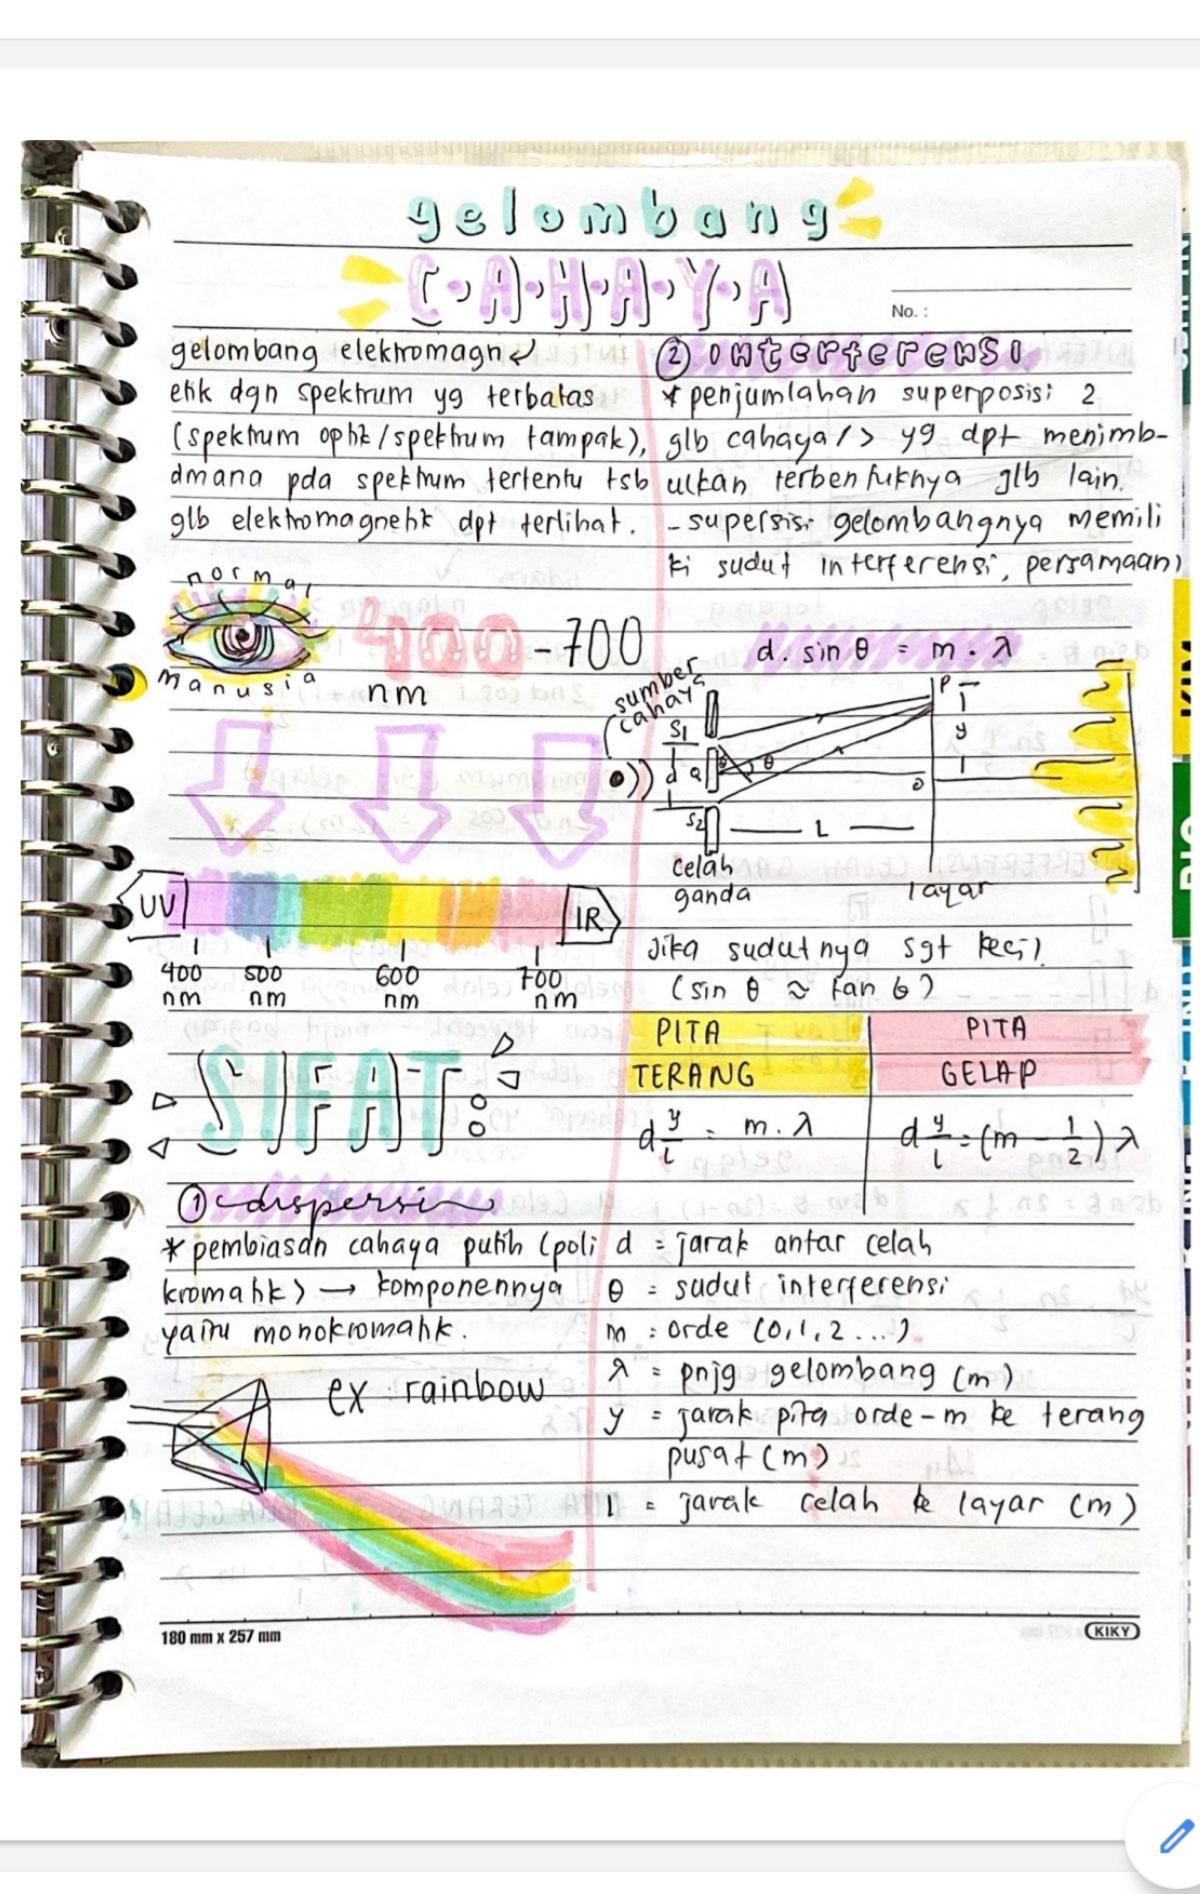 gelombang
C.A.H.A.Y.A
No. :
gelombang elektromagn
etik dgn spektrum yg terbatas
(spektrum optik/spektrum tampak),
dmana pda spektrum tertentu tsb
glb elektromagnetik dpt terlihat.
normal
manusia
400-700
nm
UV
IR
400 500 600 700
nm nm nm nm
SIFAT:
① dispersi
* pembiasan cahaya putih (poli
kromatik) → komponennya
yaitu monokromatik.
ex : rainbow
② interferensi
* penjumlahan superposisi 2
glb cahaya / > yg dpt menimb-
ulkan terbentuknya glb lain.
- supersisi gelombangnya memili
ki sudut interferensi, persamaan
d. sin θ = m . λ
sumber
cahaya
S1
d
a
θ
θ
S2
P
y
0
L
celah
ganda
layar
Jika sudutnya sgt kecil
(sin θ ≈ tan θ)
PITA
TERANG
d y/l = m . λ
PITA
GELAP
d y/l = (m - 1/2) λ
d = jarak antar celah
θ = sudut interferensi
m : orde (0,1,2...)
λ = pnjg gelombang (m)
y = jarak pita orde-m ke terang
pusat (m)
l = jarak celah ke layar (m)
180 mm x 257 mm
KIKY